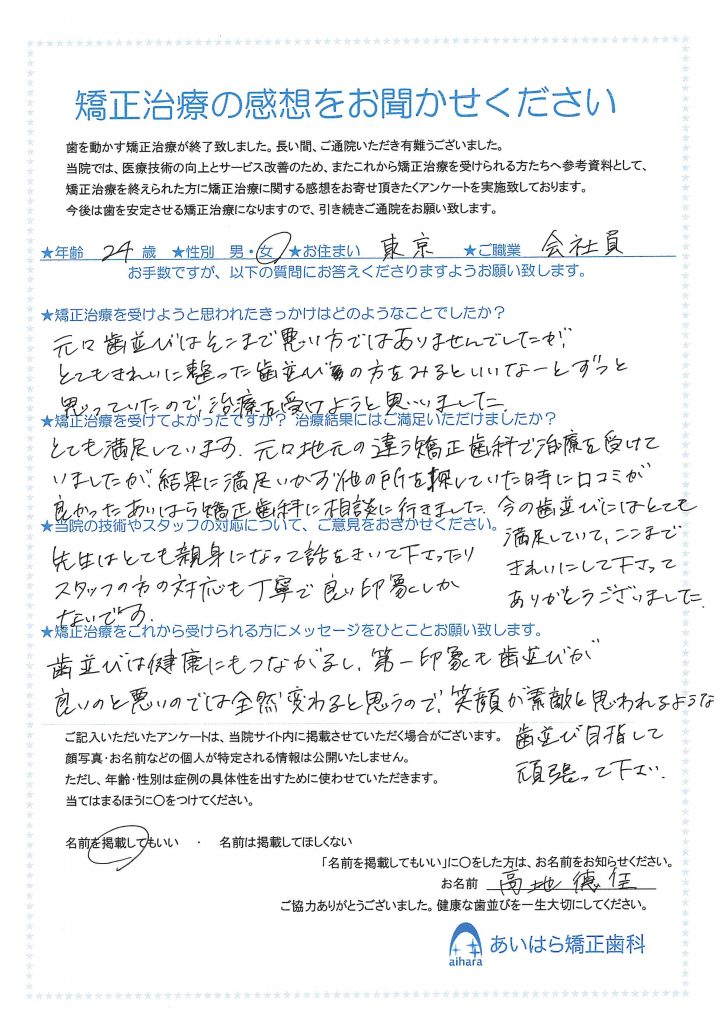 矯正治療の感想をお聞かせください
歯を動かす矯正治療が終了致しました。長い間、ご通院いただき有難うございました。
当院では、医療技術の向上とサービス改善のため、またこれから矯正治療を受けられる方たちへ参考資料として、
矯正治療を終えられた方に矯正治療に関する感想をお寄せ頂きたくアンケートを実施致しております。
今後は歯を安定させる矯正治療になりますので、引き続きご通院をお願い致します。
★年齢 24 歳 ★性別 男・女 ★お住まい 東京 ★ご職業 会社員
お手数ですが、以下の質問にお答えくださりますようお願い致します。
★矯正治療を受けようと思われたきっかけはどのようなことでしたか？
元々歯並びはそこまで悪い方ではありませんでしたが、
とてもきれいに整った歯並びの方をみるといいなーとずっと
思っていたので、治療を受けようと思いました。
★矯正治療を受けてよかったですか？ 治療結果にはご満足いただけましたか？
とても満足しています。元々地元の違う矯正歯科で治療を受けて
いましたが、結果に満足いかず他の所を探していた時に口コミが
良かったあいはら矯正歯科に相談に行きました。今の歯並びにはとても
満足していて、ここまで
きれいにして下さって
ありがとうございました。
★当院の技術やスタッフの対応について、ご意見をおきかせください。
先生はとても親身になって話をきいて下さったり
スタッフの方の対応も丁寧で良い印象しか
ないです。
★矯正治療をこれから受けられる方にメッセージをひとことお願い致します。
歯並びは健康にもつながるし、第一印象も歯並びが
良いのと悪いのでは全然変わると思うので、笑顔が素敵と思われるような
歯並び目指して
頑張って下さい。
ご記入いただいたアンケートは、当院サイト内に掲載させていただく場合がございます。
顔写真・お名前などの個人が特定される情報は公開いたしません。
ただし、年齢・性別は症例の具体性を出すために使わせていただきます。
当てはまるほうに〇をつけてください。
名前を掲載してもいい ・ 名前は掲載してほしくない
「名前を掲載してもいい」に〇をした方は、お名前をお知らせください。
お名前 高地 徳佳
ご協力ありがとうございました。健康な歯並びを一生大切にしてください。
aihara あいはら矯正歯科